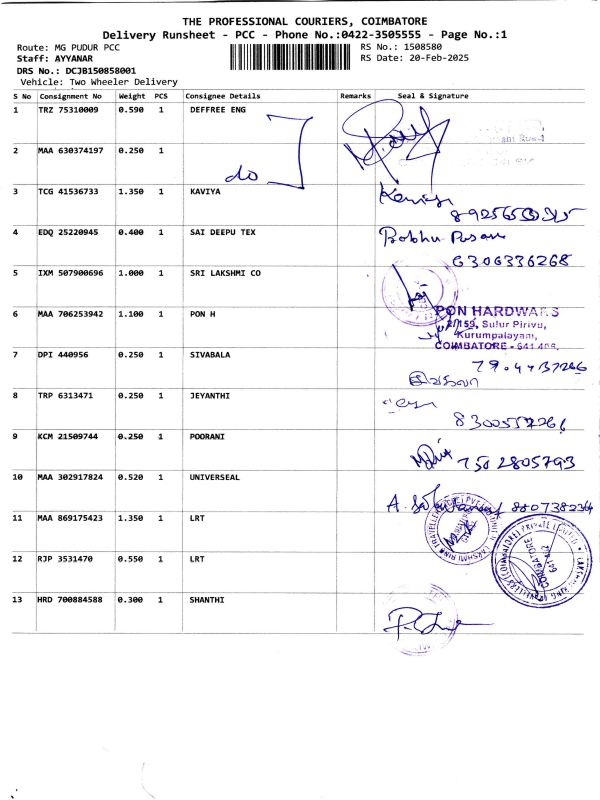 THE PROFESSIONAL COURIERS, COIMBATORE
Delivery Runsheet - PCC - Phone No.:0422-3505555 - Page No.:1
Route: MG PUDUR PCC
RS No.: 1508580
Staff: AYYANAR
RS Date: 20-Feb-2025
DRS No.: DCJB150858001
Vehicle: Two Wheeler Delivery
S No Consignment No Weight PCS Consignee Details Remarks Seal & Signature
1 TRZ 75310009 0.590 1 DEFFREE ENG
2 MAA 630374197 0.250 1 do
3 TCG 41536733 1.350 1 KAVIYA
4 EDQ 25220945 0.400 1 SAI DEEPU TEX
6306336268
5 IXM 507900696 1.000 1 SRI LAKSHMI CO
6 MAA 706253942 1.100 1 PON H
PON HARDWARS
2/159, Sulur Pirivu,
Kurumpalayam,
COIMBATORE - 641 406.
7 DPI 440956 0.250 1 SIVABALA
8 TRP 6313471 0.250 1 JEYANTHI
9 KCM 21509744 0.250 1 POORANI
7502805793
10 MAA 302917824 0.520 1 UNIVERSEAL
11 MAA 869175423 1.350 1 LRT
12 RJP 3531470 0.550 1 LRT
13 HRD 700884588 0.300 1 SHANTHI